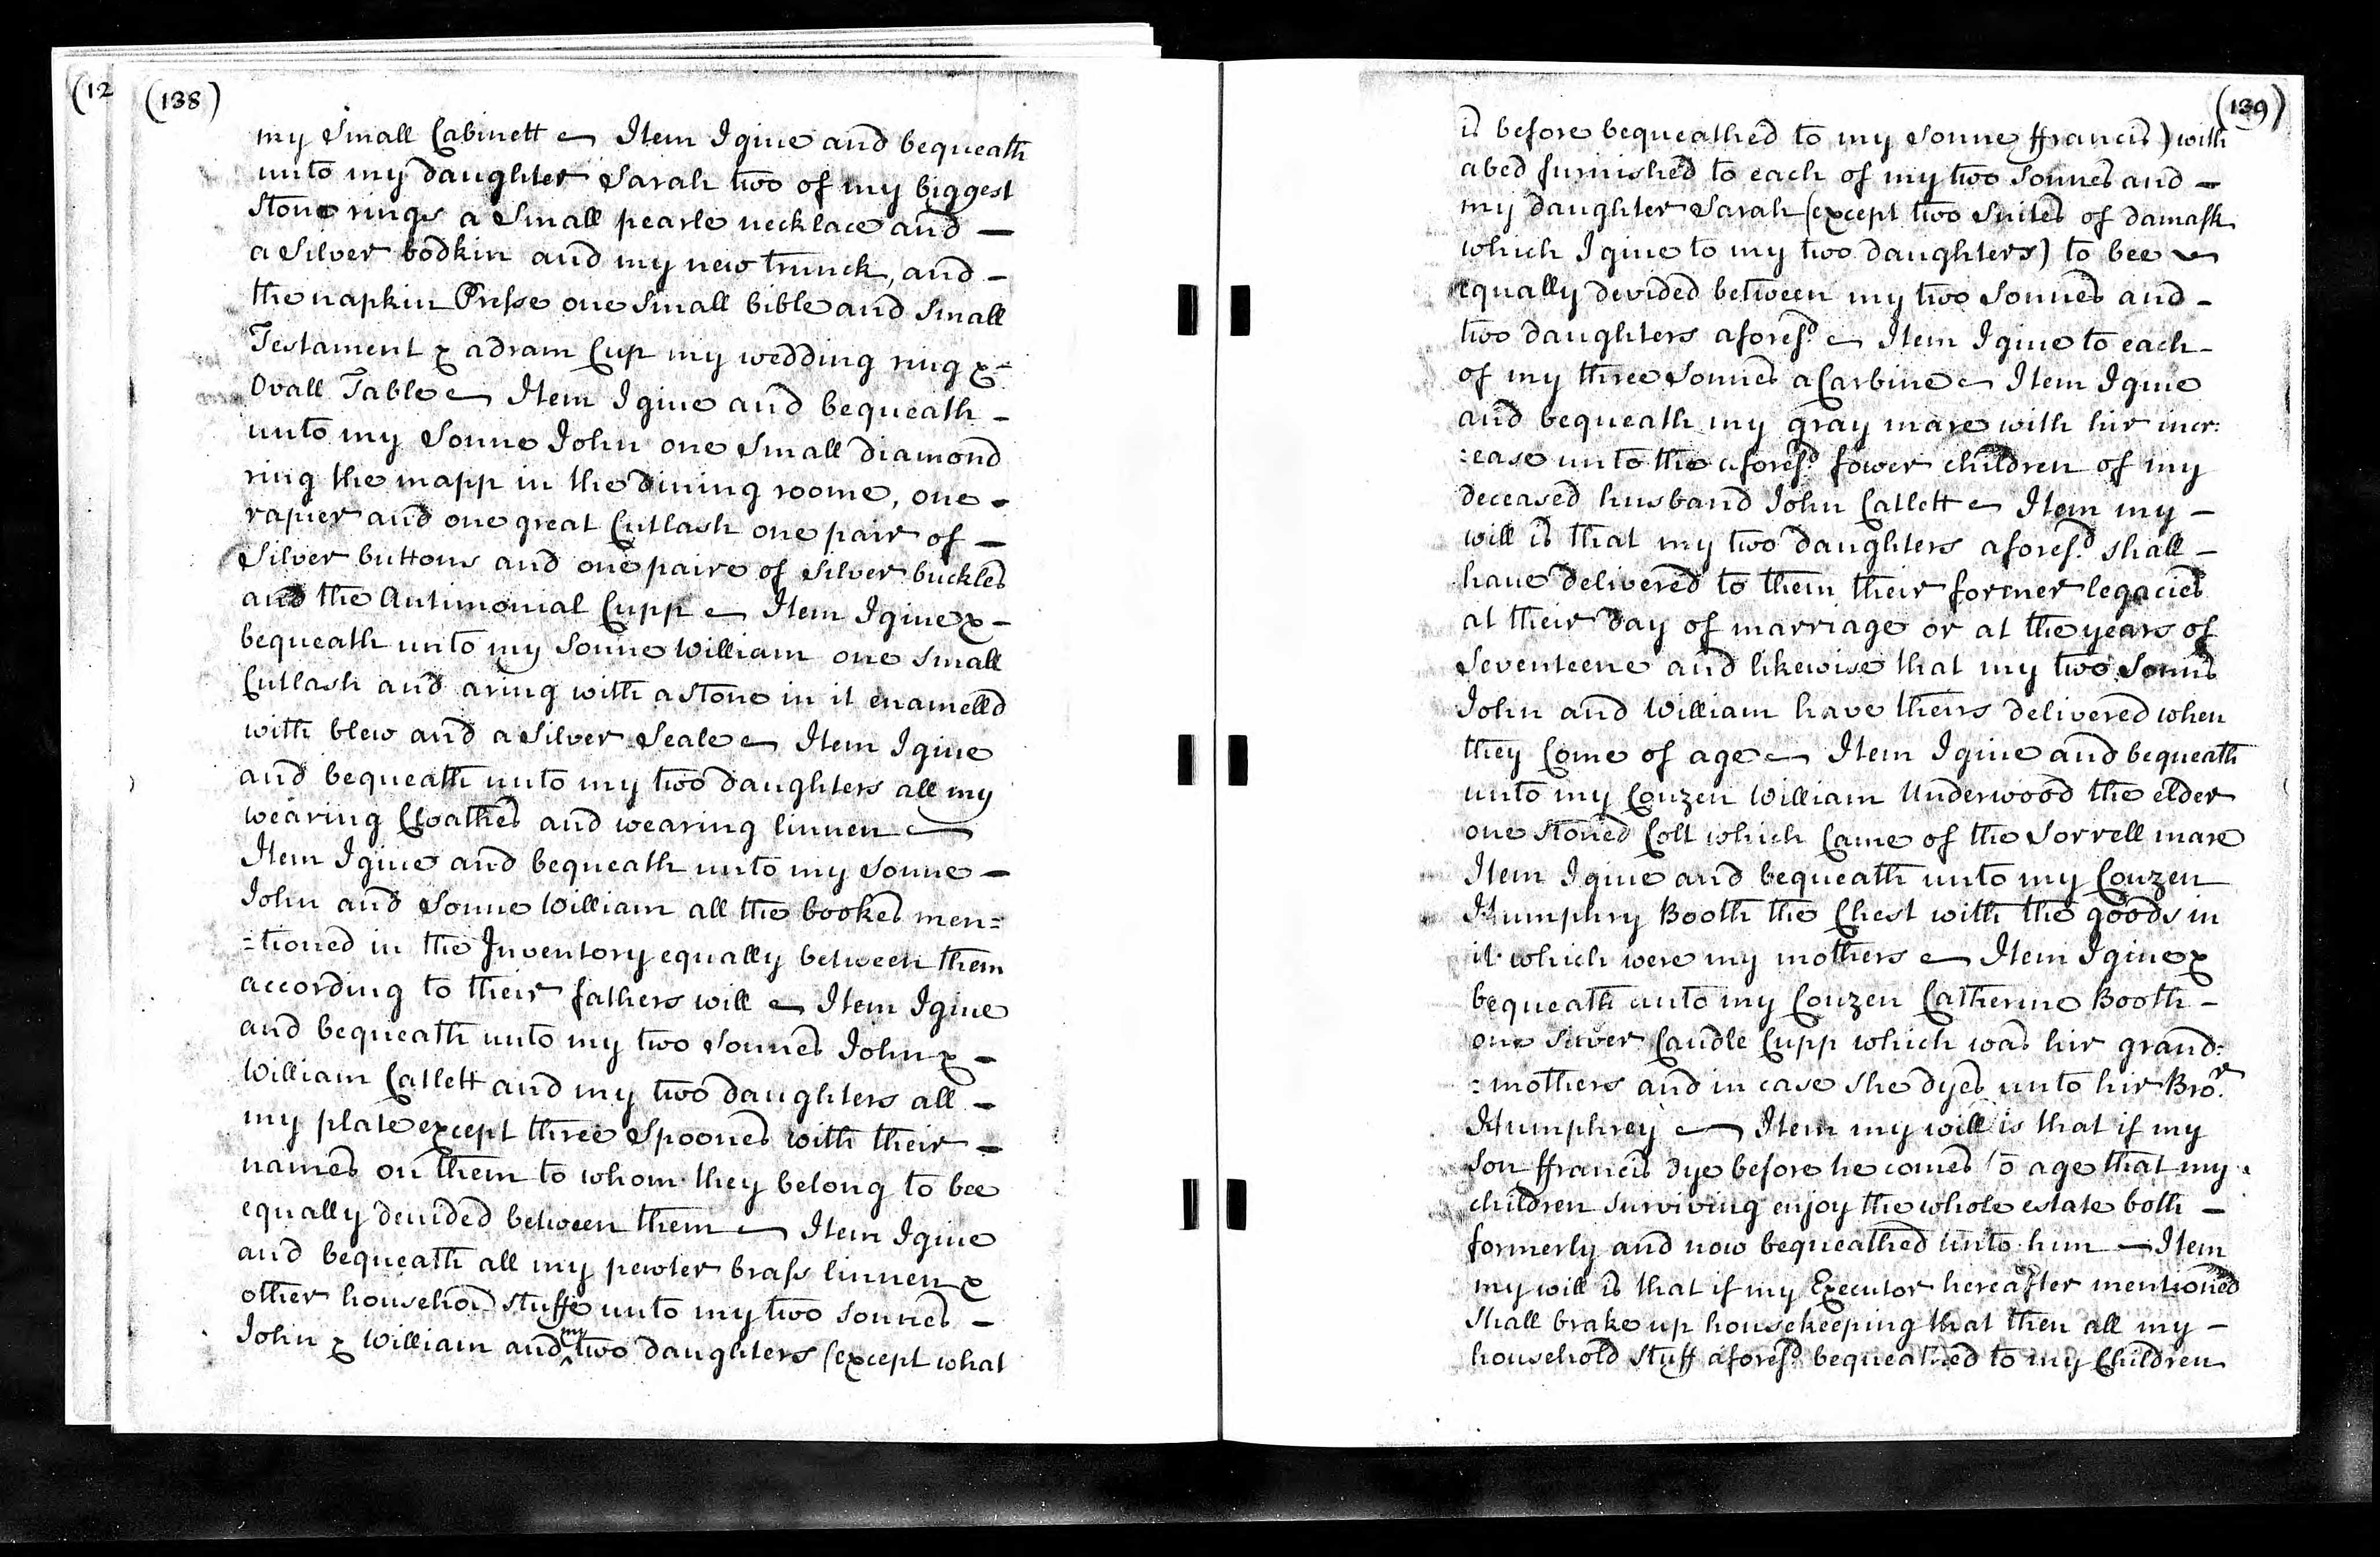 (12
(138)
my Small Cabinett Item I giue and bequeath
unto my daughter Sarah two of my biggest
Stone rings a Small pearle necklace and –
a Silver bodkin and my new trunck, and –
the napkin Presse one Small bible and Small
Testament & a dram Cup my wedding ring & –
Ovall Table Item I giue and bequeath –
unto my Sonne John one Small diamond
ring the mapp in the dining roome, one –
rapier and one great Cutlash one pair of –
Silver buttons and one paire of Silver buckles
and the Antimonial Cupp Item I giue & –
bequeath unto my Sonne William one Small
Cutlash and a ring with a stone in it enamelld
with blew and a Silver Seale Item I giue
and bequeath unto my two daughters all my
wearing Cloathes and wearing linnen
Item I giue and bequeath unto my Sonne –
John and Sonne William all the bookes men=
=tioned in the Inventory equally between them
according to their fathers will Item I giue
and bequeath unto my two Sonnes John & –
William Catlett and my two daughters all –
my plate except three Spoones with their –
names on them to whom they belong to bee
equally deuided between them Item I giue
and bequeath all my pewter brass linnen &
other househod stuffe unto my two Sonnes –
John & William and ^my two daughters (except what
(139)
is before bequeathed to my Sonne ffrancis) with
a bed furnished to each of my two Sonnes and –
my daughter Sarah (except two Suites of damask
which I giue to my two daughters) to bee
equally devided between my two Sonnes and –
two daughters aforesd. Item I giue to each –
of my three Sonnes a Carbine Item I giue
and bequeath my gray mare with hir incr:
:ease unto the aforesd. fower children of my
deceased husband John Catlett Item my –
will is that my two daughters aforesd. shall –
haue delivered to them their former legacies
at their day of marriage or at the years of
Seventeene and likewise that my two Sonns
John and William have theirs delivered when
they Come of age Item I giue and bequeath
unto my Couzen William Underwood the elder
one stoned Colt which Came of the Sorrell mare
Item I giue and bequeath unto my Couzen
Humphry Booth the Chest with the goods in
it which were my mothers Item I giue &
bequeath unto my Couzen Catherine Booth –
one Silver Caudle Cupp which was hir grand:
:mothers and in case she dyes unto hir Bror.
Humphrey Item my will is that if my
Son ffrancis dye before he comes to age that my
children surviving enjoy the whole estate both –
formerly and now bequeathed unto him – Item
my will is that if my Executor hereafter mentioned
Shall brake up housekeeping that then all my –
household stuff aforesd. bequeathed to my Children